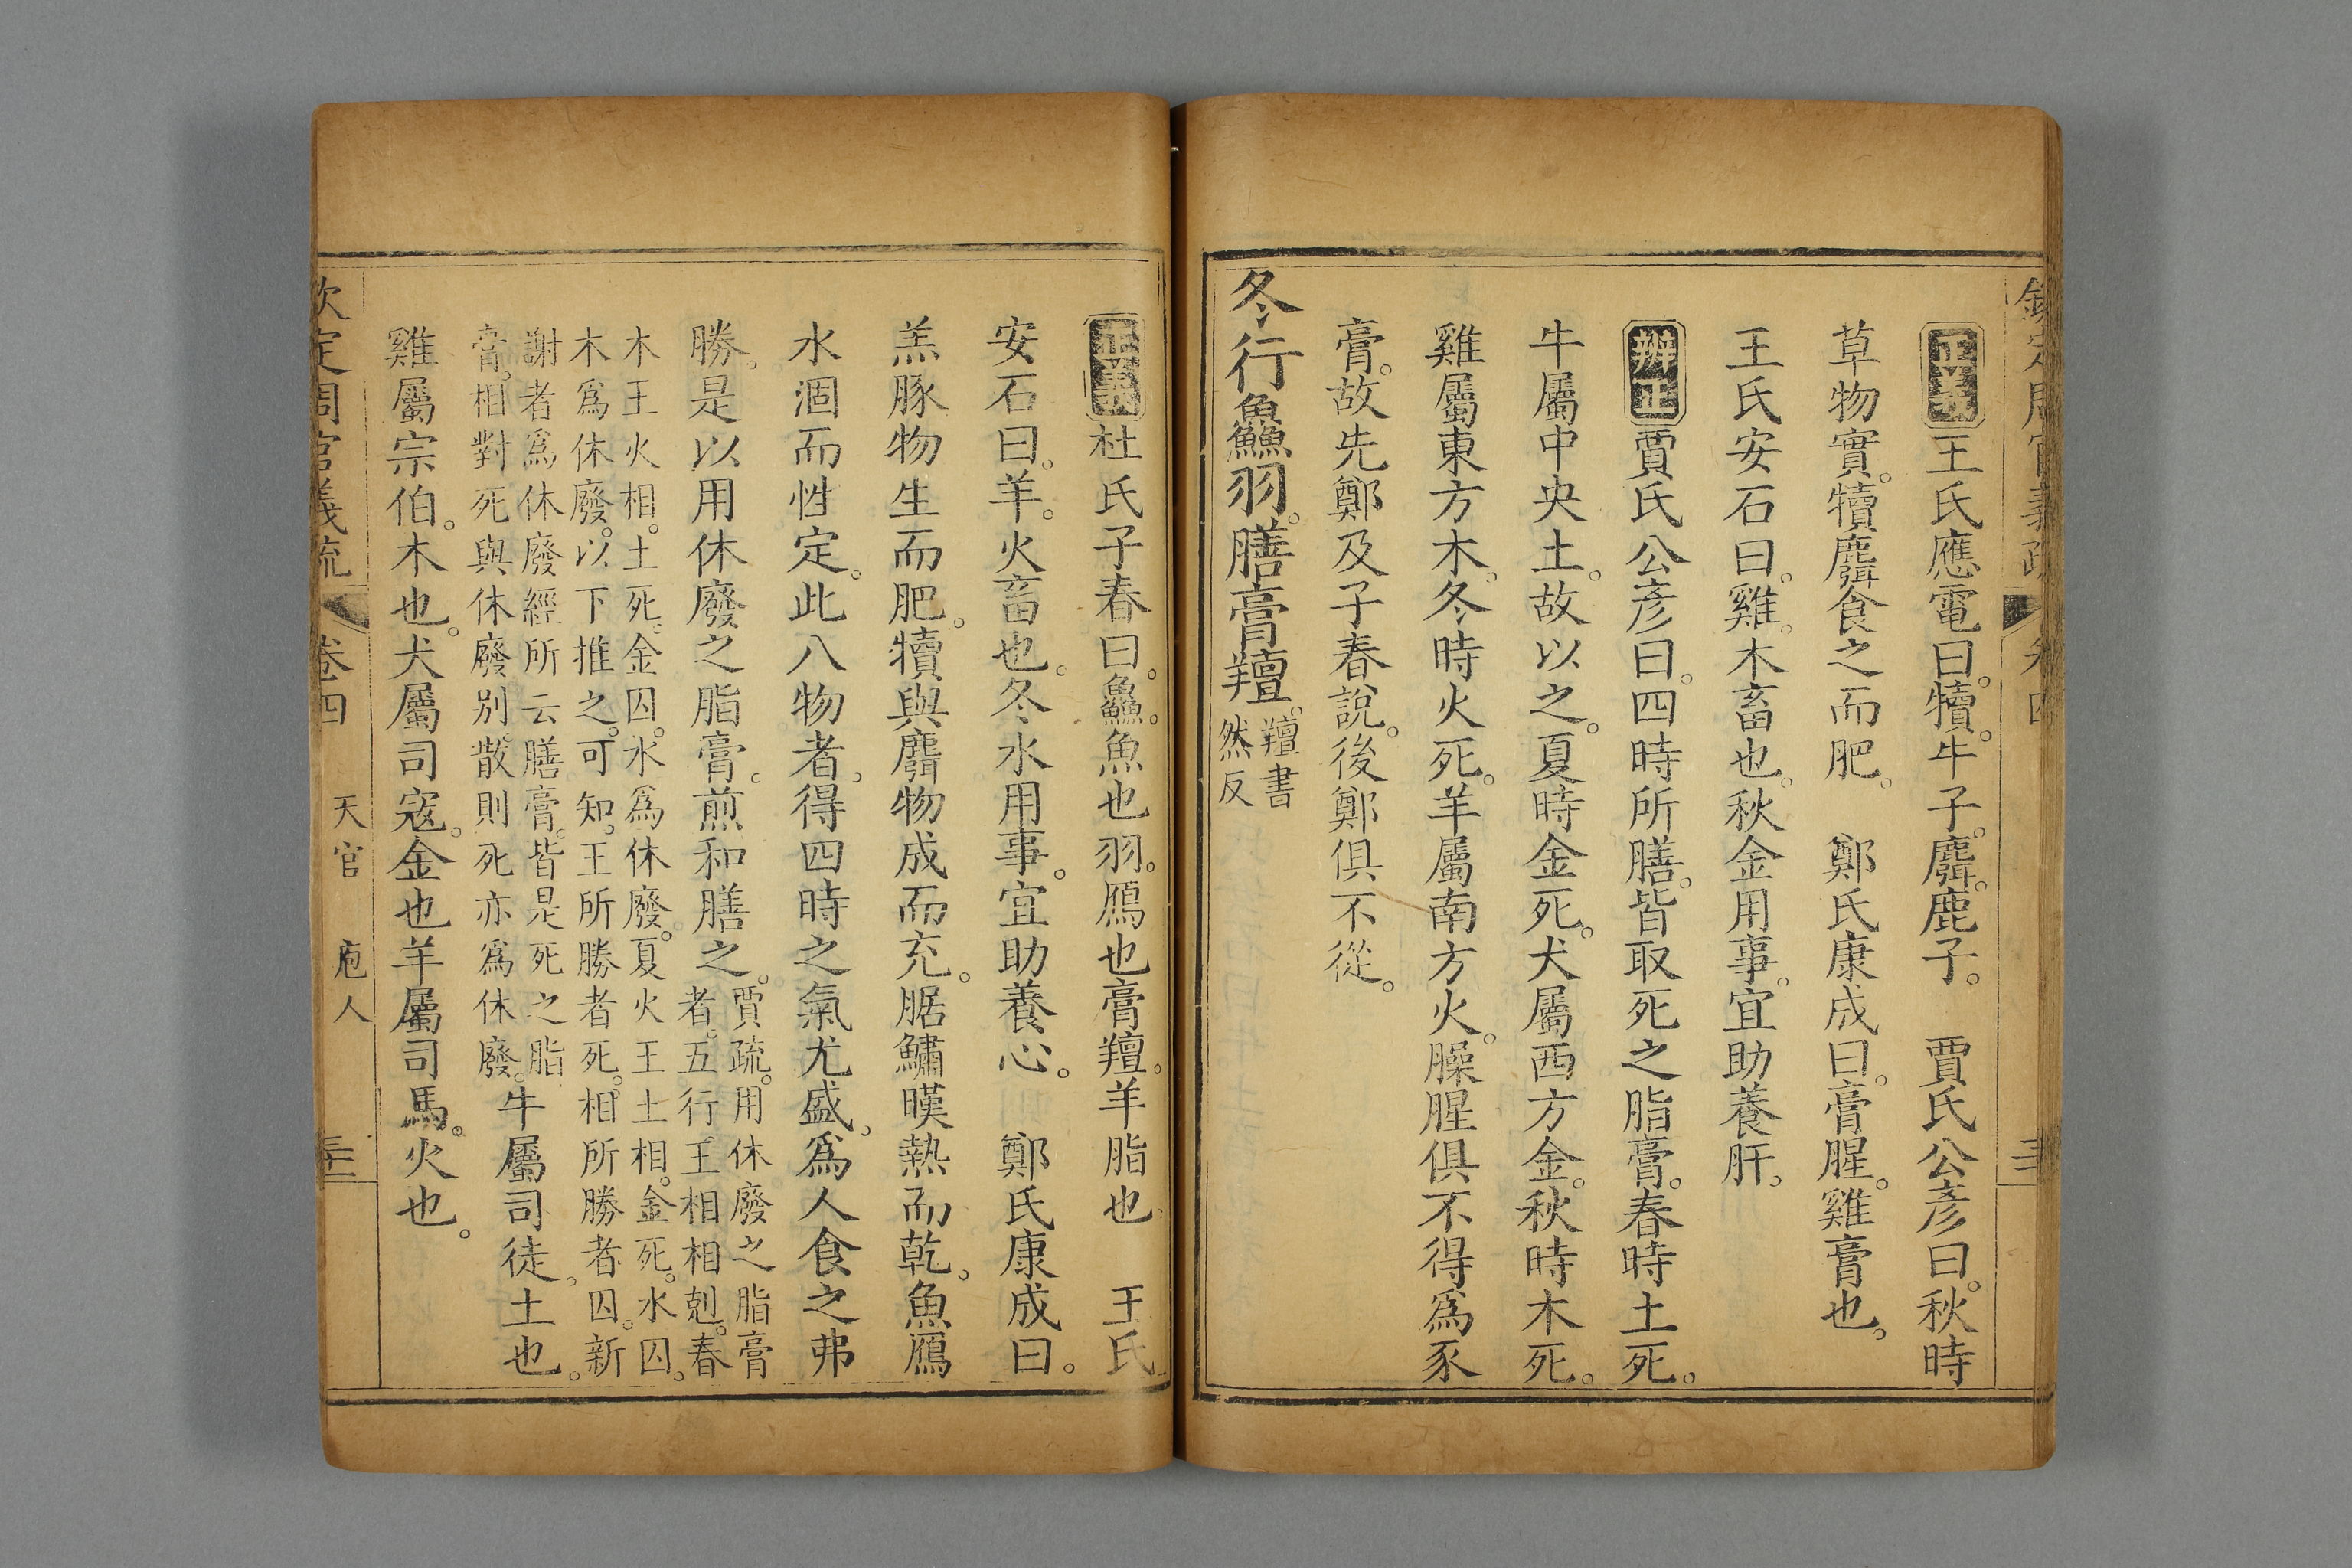 正義王氏應電曰。犢。牛子。麛。鹿子。　賈氏公彥曰。秋時
草物實。犢麛食之而肥。　鄭氏康成曰。膏腥。雞膏也。
王氏安石曰。雞。木畜也。秋金用事。宜助養肝。
辨正賈氏公彥曰。四時所膳。皆取死之脂膏。春時土死。
牛屬中央土。故以之。夏時金死。犬屬西方金。秋時木死。
雞屬東方木。冬時火死。羊屬南方火。臊腥俱不得爲豕
膏。故先鄭及子春說。後鄭俱不從。
冬行鱻羽。膳膏羶。羶書然反
正義杜氏子春曰。鱻。魚也。羽。鴈也。膏羶。羊脂也　王氏
安石曰。羊。火畜也。冬水用事。宜助養心。　鄭氏康成曰。
羔豚物生而肥。犢與麛物成而充。腒鱐暵熱而乾。魚鴈
水涸而性定。此八物者。得四時之氣尤盛。爲人食之弗
勝。是以用休廢之脂膏。煎和膳之。賈疏。用休廢之脂膏
者。五行王相相剋。春
木王火相。土死。金囚。水爲休廢。夏火王土相。金死。水囚。
木爲休廢。以下推之。可知。王所勝者死。相所勝者囚。新
謝者爲休廢經所云膳膏。皆是死之脂
膏。相對死與休廢別。散則死亦爲休廢。牛屬司徒。土也。
雞屬宗伯。木也。犬屬司寇。金也羊屬司馬。火也。
欽定周官義疏　卷四　天官　庖人